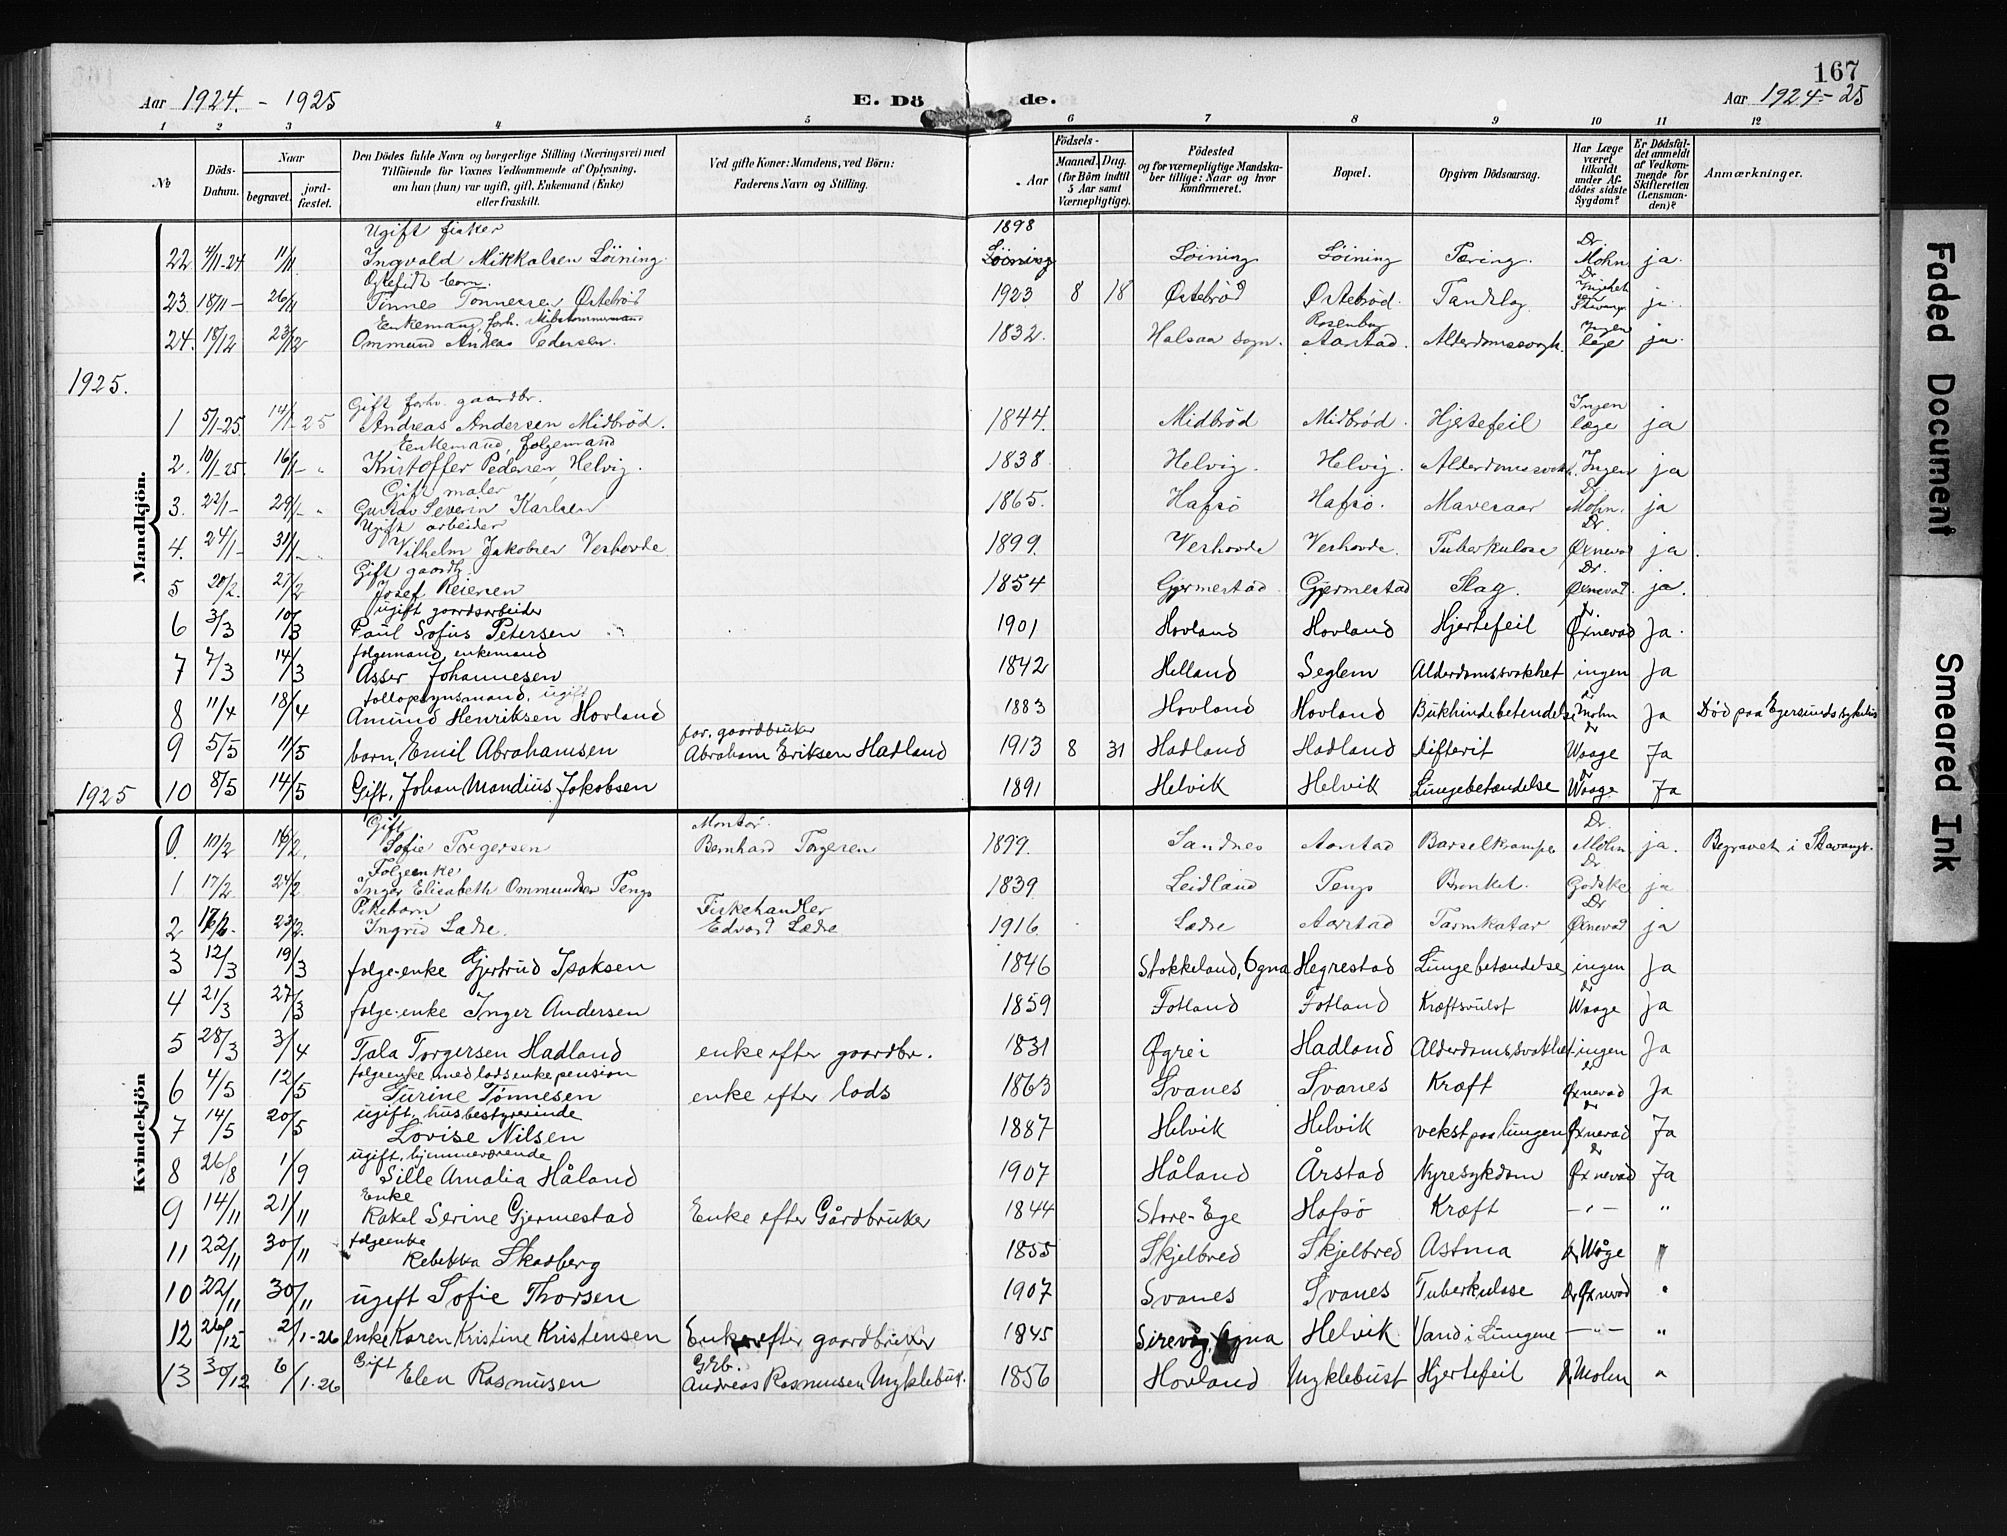 167
Aar 1924. - 1925
E. Dö de.
Aar 1924 - 25
1 2 3 4 5 6 7 8 9 10 11 12
No
Döds-Datum.
Naar
begravet.
jord-fæstet.
Den Dödes fulde Navn og borgerlige Stilling (Næringsvei) med
Tilföiende for Voxnes Vedkommende af Oplysning,
om han (hun) var ugift, gift, Enkemand (Enke)
eller fraskilt.
Ved gifte Koner: Mandens, ved Börn:
Faderens Navn og Stilling.
Födsels-
Aar
Maaned. Dag.
(for Börn indtil
5 Aar samt
Værnepligtige).
Födested
og for værnepligtige Mandska-
ber tillige: Naar og hvor
konfirmeret.
Bopæl.
Opgiven Dödsaarsag.
Har Læge
været
tilkaldt
under Af-
dödes sidste
Sygdom?
Er Dödsfal-
det anmeldt
af Vedkom-
mende for
Skifteretten
(Lensman-
den)?
Anmærkninger.
Mandkjön.
Ugift fisker 1898 Dr.
22 4/11-24 11/11 Ingvald Mikkalsen Löining Löining Löining Tæring. Mohn ja.
23 18/11 - 26/11 Tönnes Tönnessen Østebröd 1923 8 18 Østebröd Østebröd. ja.
Enkemand, forh. Rosenburg Ingen
24. 18/12 23/12 Ommund Andreas Pedersen. 1832. Halsaa sogn. Aarstad. læge ja.
1925.
Gift forhv. gaardbr. Ingen
1 5/1-25. 14/1-25 Andreas Andersen Midbröd. 1844. Midbröd Midbröd. Hjetefeil læge ja
Enkemand, folgemand
2. 10/1-25. 16/1- " Kristoffer Pedersen, Helvig. 1838 Helvig. Helvig. Ingen ja
Gift maler
3. 22/1- 29/1- " Gustav Severin Karlsen 1865. Hafsö Hafsö. Mavesaar Mohn. ja
Ugift arbeider Dr.
4. 24/1- 31/1- " Vilhelm Jakobsen Veshovde 1899. Veshovde Veshovde. Tuberkulose Øxnevad ja.
Gift gaardb. Dr.
5 20/2. 27/2 Josef Reiersen 1854 Gjermestad Gjermestad Slag. Øxnevad. ja.
ugift gaardsarbeider dr.
6 3/3 10/3 Paul Sofus Petersen 1901 Hovland Hovland Hjertefeil Øxnevad Ja.
folgemand, enkemand
7 7/3 14/3 Asser Johannesen 1842 Helland Seglem Alderdomssvakhet ingen Ja
ugift dr
8 11/4 18/4 Amund Henriksen Hovland 1883 Hovland Hovland Mohn Ja Död paa Egersunds sykehus
for. gaardbruker dr
9 5/5 11/5 barn, Emil Abrahamsen Abraham Eriksen Hadland 1913 8 31 Hadland Hadland difterit Waage Ja
dr
10 8/5 14/5 Gift, Johan Mandius Jakobsen 1891 Helvik Helvik Lungebetændelse Waage Ja
1925
Kvindekjön
Gift Montör. Dr.
0. 10/2 16/2. Sofie Torgersen Bernhard Torgersen 1899. Sandnes Aarstad Barselkrampe Mohn ja. Begravet i Stavanger.
Folgeenke Dr
1 17/2 24/2 Inger Elisabeth Ommundsen Tengs 1839 Leidland Tengs Bronkit. Godske ja
Pikebarn Fiskehandler Dr
2 17/2. 23/2. Ingrid Lædre. Edvard Lædre 1916. Lædre Aarstad Tarmkatar Øxnevad ja
3 12/3 19/3 folge-enke Gjertrud Isaksen 1846 Stokkeland, Ogna Hegrestad Lungebetændelse ingen Ja
dr
4 21/3 27/3 folge-enke Inger Andersen 1859 Fotland Fotland Kræftsvulst Waage Ja
5 28/3 3/4 Tala Torgersen Hadland enke efter gaardbr. 1831 Øgrei Hadland Alderdomssvakhet ingen Ja
folgeenke med lodsenkepension dr
6 4/5 12/5 Surine Tönnesen enke efter lods 1863 Svanes Svanes Kræft Øxnevad Ja
ugift, husbestyrerinde dr
7 14/5 20/5 Lovise Nilsen 1887 Helvik Helvik vekst paa lungen Øxnevad Ja
ugift, hjemmeværende dr
8 26/8 1/9 Sille Amalia Håland 1907 Håland Årstad Nyresykdom Øxnevad Ja
Enke
9 14/11 21/11 Rakel Serine Gjermestad Enke efter Gårdbruker 1844 Store-Ege Hafsö Kræft - " - "
folgeenke
11 22/11 30/11 Rebekka Skadberg 1855 Skjelbred Skjelbred Astma dr Wåge "
10 22/11 30/11 ugift Sofie Thorsen 1907 Svanes Svanes Tuberkulose dr Øxnevad "
12 26/12 2/1-26 enke Karen Kristine Kristensen Enke efter gaardbruker 1845 Sirevåg, Ogna Helvik Vand i Lungene - " - "
Gift Grb.
13 30/12 6/1-26 Elen Rasmusen Andreas Rasmusen Myklebust. 1856 Hovland Myklebust Hjertefeil dr Mohn "
Faded Document
Smeared Ink